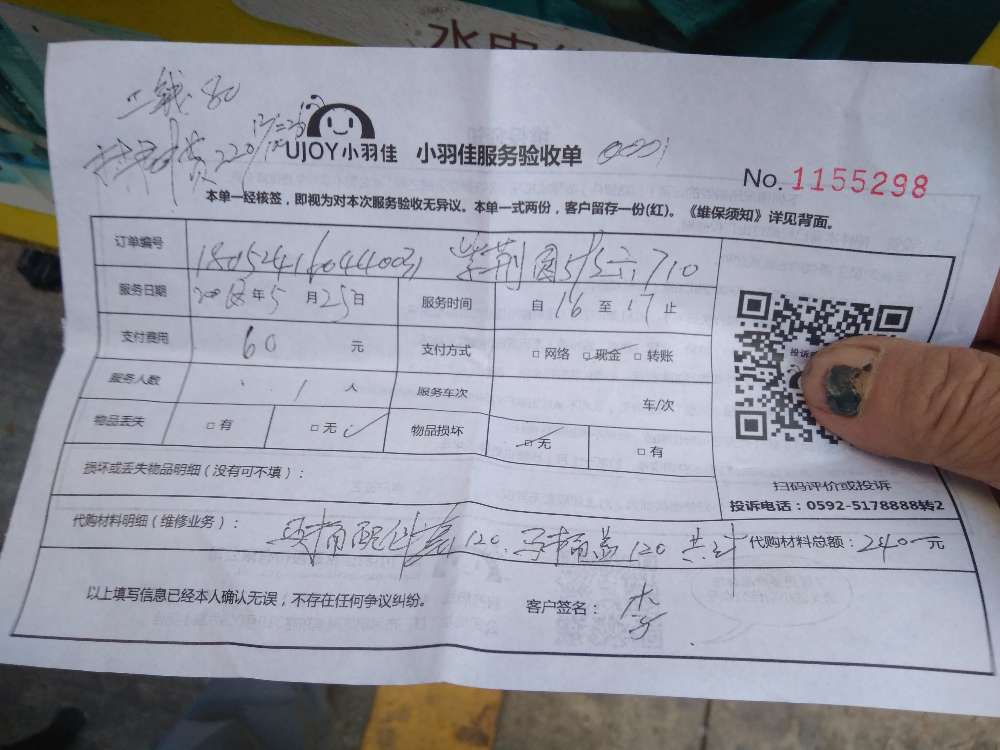 水电
工钱80
材料费220
UJOY小羽佳 小羽佳服务验收单
No.1155298
本单一经核签，即视为对本次服务验收无异议。本单一式两份，客户留存一份(红)。《维保须知》详见背面。
订单编号 紫荆园 710
服务日期 2018年5月25日 服务时间 自16至17止
支付费用 60元 支付方式 □网络 □现金 □转账
服务人数 1人 服务车次 车/次
物品丢失 □有 □无 物品损坏 □无 □有
损坏或丢失物品明细（没有可不填）：
扫码评价或投诉
投诉电话：0592-5178888转2
代购材料明细（维修业务）： 马桶配件套120 马桶盖120 共计 代购材料总额：240元
以上填写信息已经本人确认无误，不存在任何争议纠纷。 客户签名： 李